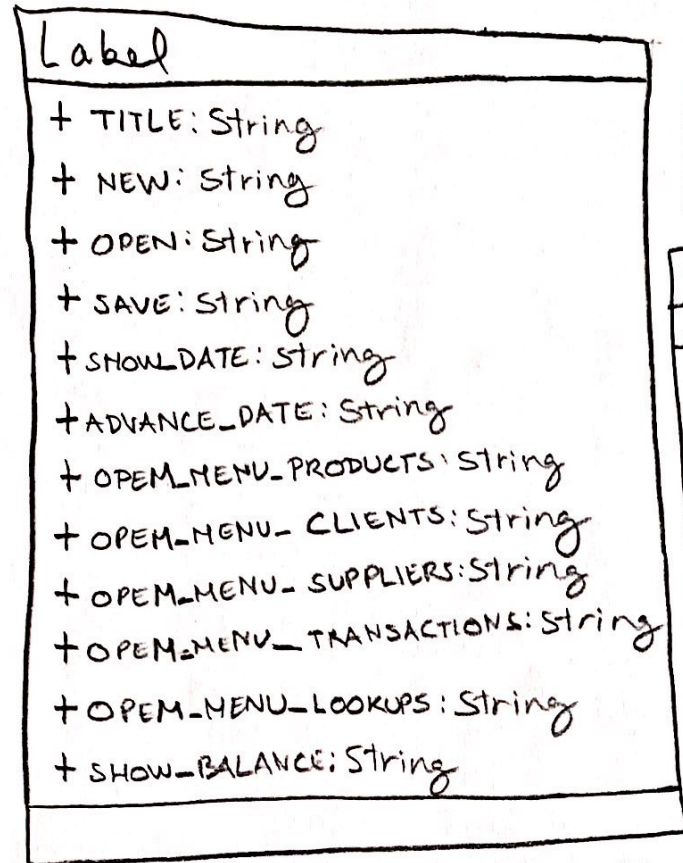 Label
+ TITLE: String
+ NEW: String
+ OPEN: String
+ SAVE: String
+ SHOW_DATE: String
+ ADVANCE_DATE: String
+ OPEM_MENU_PRODUCTS: String
+ OPEM_MENU_CLIENTS: String
+ OPEM_MENU_SUPPLIERS: String
+ OPEM_MENU_TRANSACTIONS: String
+ OPEM_MENU_LOOKUPS: String
+ SHOW_BALANCE: String